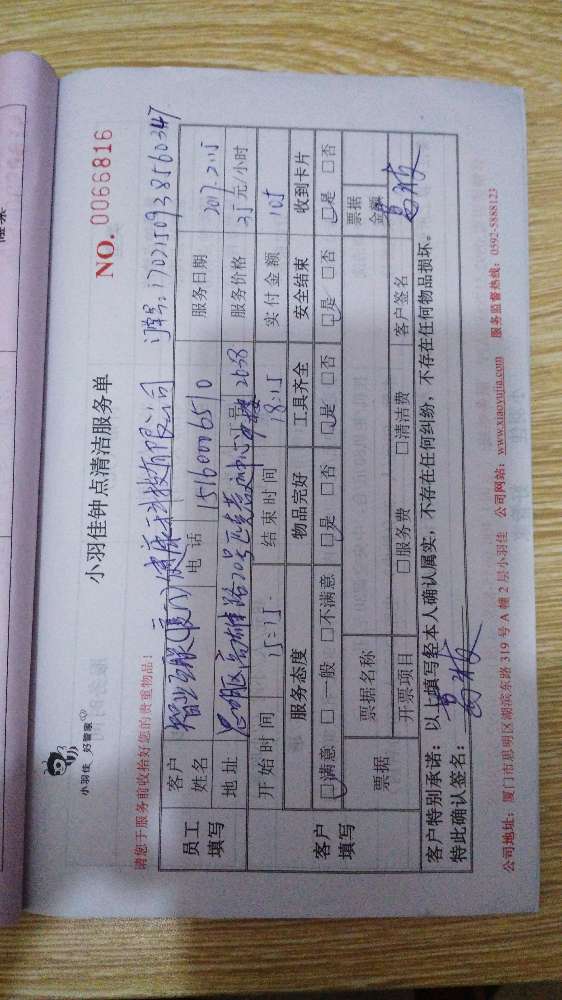 小羽佳 好管家
小羽佳钟点清洁服务单
NO. 0066816
请您于服务前收拾好您的贵重物品!
订单号:1702150938560347
员工填写
客户姓名 智业互联(厦门)健康科技有限公司
电话 15160006510
服务日期 2017.2.15
地址 思明区高雄路70号
服务价格 35元/小时
开始时间 15:15
结束时间 18:15
实付金额 105
客户填写
服务态度 物品完好 工具齐全 安全结束 收到卡片
□满意 □一般 □不满意 □是 □否 □是 □否 □是 □否 □是 □否
票据 票据名称 票据金额
开票项目 □服务费 □清洁费 客户签名
客户特别承诺:以上填写经本人确认属实,不存在任何纠纷,不存在任何物品损坏。
特此确认签名:
公司地址:厦门市思明区湖滨东路319号A幢2层小羽佳 公司网站:www.xiaoyujia.com 服务监督热线:0592-5888123